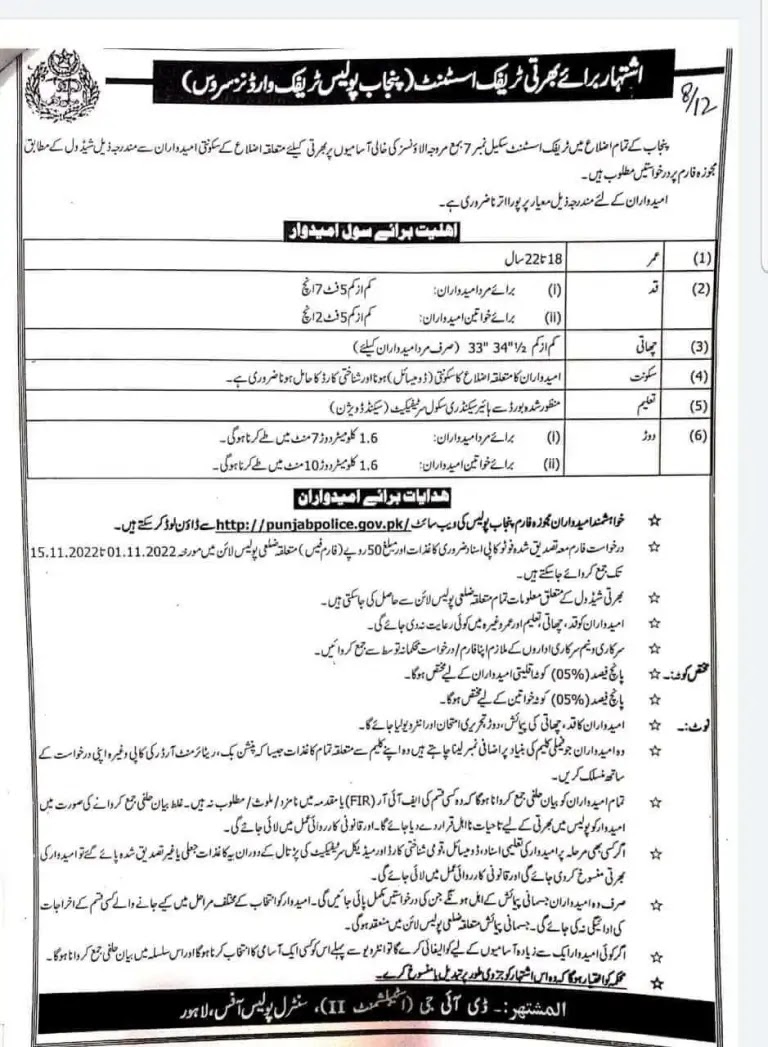 اشتہار برائے بھرتی ٹریفک اسسٹنٹ (پنجاب پولیس ٹریفک وارڈنز سروس)
8/12
پنجاب کے تمام اضلاع میں ٹریفک اسسٹنٹ سکیل نمبر 7 بمع مروجہ الاؤنسز کی خالی آسامیوں پر بھرتی کیلئے متعلقہ اضلاع کے سکونتی امیدواران سے مندرجہ ذیل شیڈول کے مطابق
مجوزہ فارم پر درخواستیں مطلوب ہیں۔
امیدواران کے لئے مندرجہ ذیل معیار پر پورا اترنا ضروری ہے۔
اہلیت برائے سول امیدوار
(1) عمر 18 تا 22 سال
(2) قد (i) برائے مرد امیدواران: کم از کم 5 فٹ 7 انچ
(ii) برائے خواتین امیدواران: کم از کم 5 فٹ 2 انچ
(3) چھاتی کم از کم 33" 34"½ (صرف مرد امیدواران کیلئے)
(4) سکونت امیدواران کا متعلقہ اضلاع کا سکونتی (ڈومیسائل) ہونا اور شناختی کارڈ کا حامل ہونا ضروری ہے۔
(5) تعلیم منظور شدہ بورڈ سے ہائیر سیکنڈری سکول سرٹیفکیٹ (سیکنڈ ڈویژن)
(6) دوڑ (i) برائے مرد امیدواران: 1.6 کلومیٹر دوڑ 7 منٹ میں طے کرنا ہوگی۔
(ii) برائے خواتین امیدواران: 1.6 کلومیٹر دوڑ 10 منٹ میں طے کرنا ہوگی۔
ہدایات برائے امیدواران
☆ خواہشمند امیدواران مجوزہ فارم پنجاب پولیس کی ویب سائٹ http://punjabpolice.gov.pk/ سے ڈاؤن لوڈ کر سکتے ہیں۔
☆ درخواست فارم معہ تصدیق شدہ فوٹو کاپی اسناد ضروری کاغذات اور مبلغ 50 روپے (فارم فیس) متعلقہ ضلعی پولیس لائن میں مورخہ 01.11.2022 تا 15.11.2022
تک جمع کروائے جا سکتے ہیں۔
☆ بھرتی شیڈول کے متعلق معلومات تمام متعلقہ ضلعی پولیس لائن سے حاصل کی جا سکتی ہیں۔
☆ امیدواران کو قد، چھاتی، تعلیم اور عمر وغیرہ میں کوئی رعایت نہ دی جائے گی۔
☆ سرکاری و نیم سرکاری اداروں کے ملازم اپنا فارم/درخواست محکمانہ توسط سے جمع کروائیں۔
مختص کوٹہ:۔ ☆ پانچ فیصد (05%) کوٹہ اقلیتی امیدواران کے لیے مختص ہوگا۔
☆ پانچ فیصد (05%) کوٹہ خواتین کے لیے مختص ہوگا۔
نوٹ:۔ ☆ امیدواران کا قد، چھاتی کی پیمائش، دوڑ تحریری امتحان اور انٹرویو لیا جائے گا۔
☆ وہ امیدواران جو فیملی کلیم کی بنیاد پر اضافی نمبر لینا چاہتے ہیں وہ اپنے کلیم سے متعلقہ تمام کاغذات جیسا کہ پنشن بک، ریٹائرمنٹ آرڈر کی کاپی وغیرہ اپنی درخواست کے
ساتھ منسلک کریں۔
☆ تمام امیدواران کو بیان حلفی جمع کروانا ہوگا کہ وہ کسی قسم کی ایف آئی آر (FIR) یا مقدمہ میں نامزد/ملوث/مطلوب نہ ہیں۔ غلط بیان حلفی جمع کروانے کی صورت میں
امیدوار کو پولیس میں بھرتی کے لیے تاحیات نا اہل قرار دے دیا جائے گا۔ اور قانونی کارروائی عمل میں لائی جائے گی۔
☆ اگر کسی بھی مرحلہ پر امیدوار کی تعلیمی اسناد، ڈومیسائل، قومی شناختی کارڈ اور میڈیکل سرٹیفکیٹ کی پڑتال کے دوران یہ کاغذات جعلی یا غیر تصدیق شدہ پائے گئے تو امیدوار کی
بھرتی منسوخ کر دی جائے گی اور قانونی کارروائی عمل میں لائی جائے گی۔
☆ صرف وہ امیدواران جسمانی پیمائش کے اہل ہونگے جن کی درخواستیں مکمل پائی جائیں گی۔ امیدوار کو انتخاب کے مختلف مراحل میں کیے جانے والے کسی قسم کے اخراجات
کی ادائیگی نہ کی جائے گی۔ جسمانی پیمائش متعلقہ ضلعی پولیس لائن میں منعقد ہوگی۔
☆ اگر کوئی امیدوار ایک سے زیادہ آسامیوں کے لیے کوالیفائی کرے گا تو انٹرویو سے پہلے اس کو کسی ایک آسامی کا انتخاب کرنا ہوگا اور اس سلسلہ میں بیان حلفی جمع کروانا ہوگا۔
☆ محکمہ کو اختیار ہوگا کہ وہ اس اشتہار کو جزوی طور پر تبدیل یا منسوخ کرے۔
المشتہر:۔ ڈی آئی جی (اسٹیبلشمنٹ II)، سنٹرل پولیس آفس، لاہور